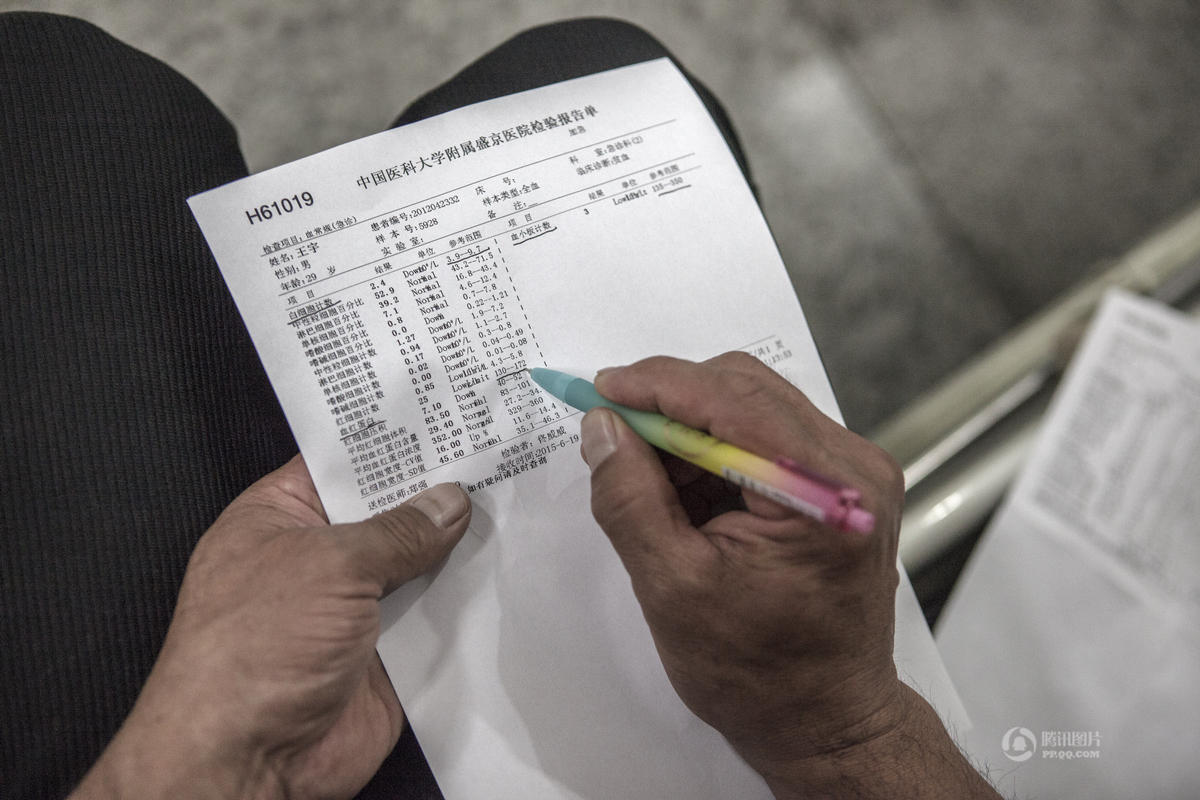 中国医科大学附属盛京医院检验报告单
加急
H61019
检查项目:血常规(急诊) 患者编号:2012042332 床 号: 科 室:急诊科(2)
姓名:王宇 样 本 号:5928 样本类型:全血 临床诊断:贫血
性别:男 实 验 室: 备 注:
年龄:29 岁
项 目 结果 单位 参考范围 项 目 结果 单位 参考范围
白细胞计数 2.4 3.9--9.7 血小板计数 3 135--350
中性粒细胞百分比 52.9 Normal 43.2--71.5
淋巴细胞百分比 39.2 Normal 16.8--43.4
单核细胞百分比 7.1 Normal 4.6--12.4
嗜酸细胞百分比 0.8 Normal 0.7--7.8
嗜碱细胞百分比 0.0 Down 0.22--1.21
中性粒细胞计数 1.27 1.9--7.2
淋巴细胞计数 0.94 1.1--2.7
单核细胞计数 0.17 0.3--0.8
嗜酸细胞计数 0.02 0.04--0.49
嗜碱细胞计数 0.00 0.01--0.08
红细胞计数 0.85 4.3--5.8
血红蛋白 25 130--172
红细胞压积 7.10 Down
平均红细胞体积 83.50 Normal 83--101
平均血红蛋白含量 29.40 Normal
平均血红蛋白浓度 352.00 Normal 329--360
红细胞宽度-CV值 16.00 Up % 11.6--14.4
红细胞宽度-SD值 45.60 Normal 35.1--46.3
送检医师:郑强 检验者:佟威威
接收时间:2015-6-19
如有疑问请及时查询
腾讯图片
PP.QQ.COM